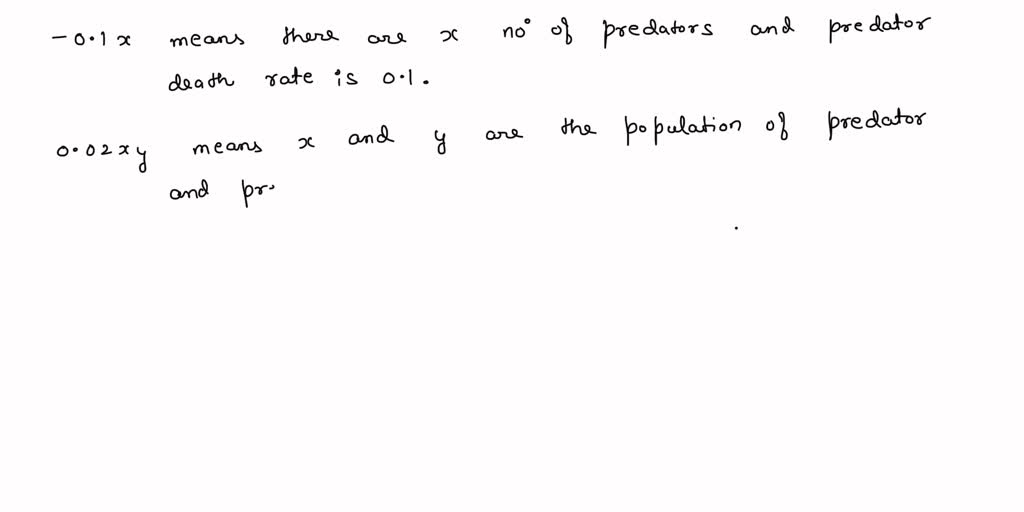 -0.1x means there are x no° of predators and predator
death rate is 0.1.
0.02xy means x and y are the population of predator
and pr